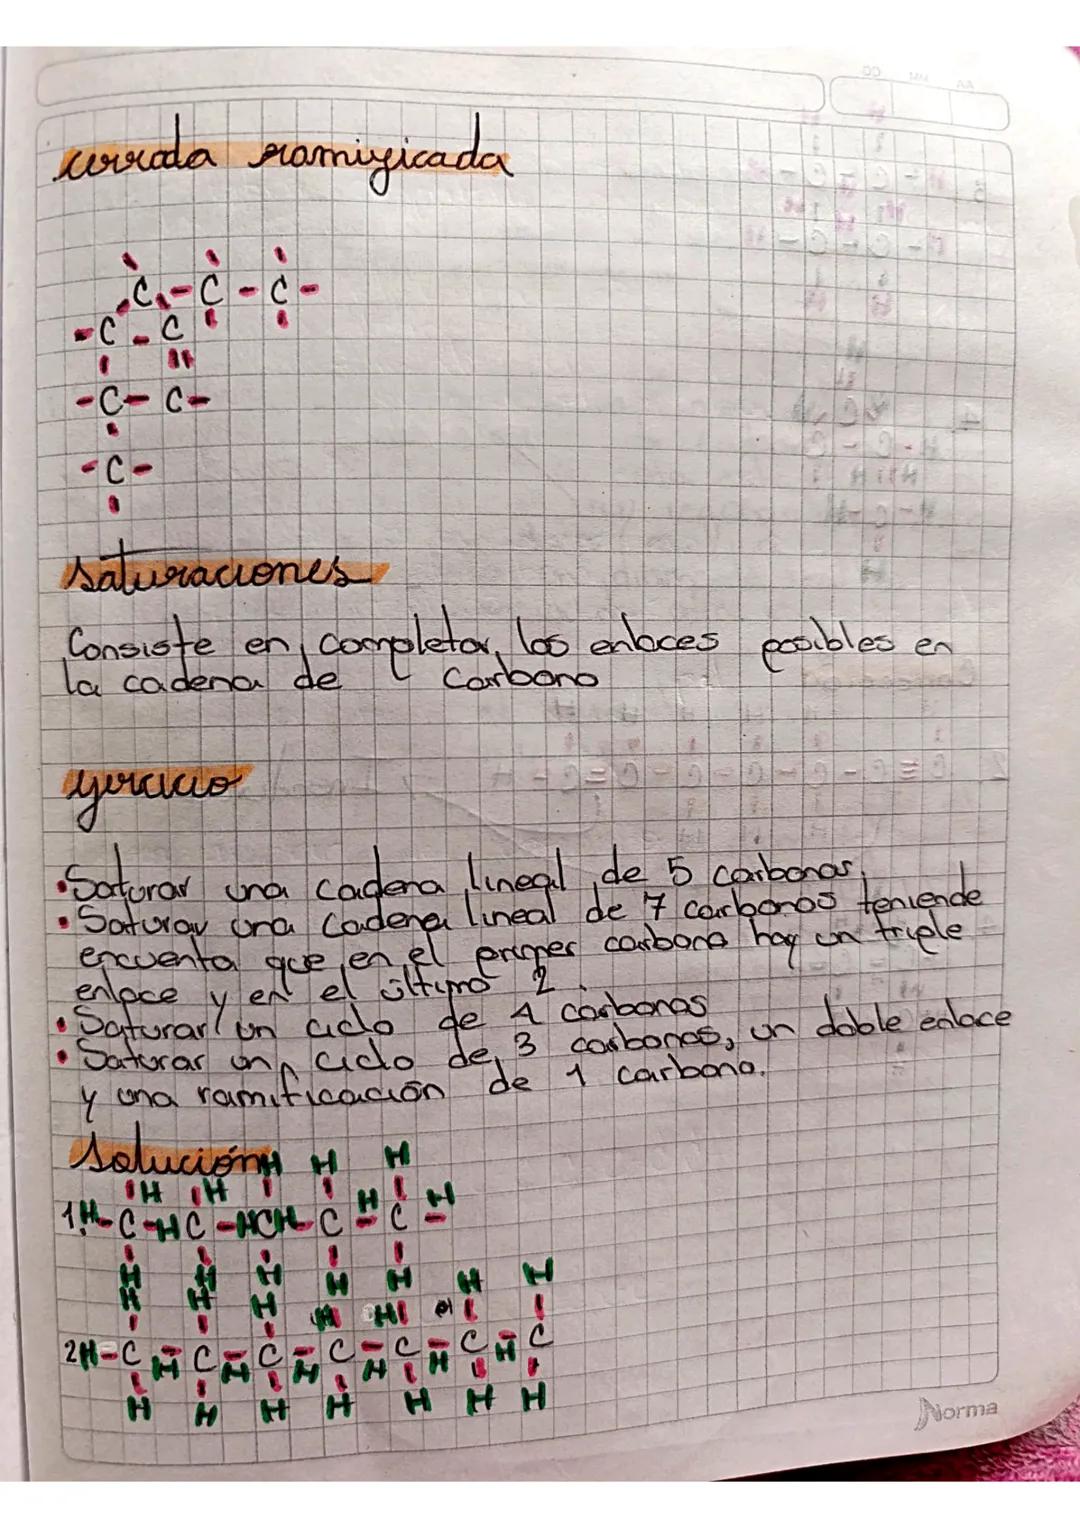 cerrada ramificada
C - C - C -
- C - C
- C - C -
- C -
saturaciones
Consiste en completar los enlaces posibles en
la cadena de carbono
ejercicio
• Saturar una cadena lineal de 5 carbonos.
• Saturar una cadena lineal de 7 carbonos teniende
encuenta que en el primer carbono hay un triple
enlace y en el último 2.
• Saturar un ciclo de 4 carbonos
• Saturar un ciclo de 3 carbonos, un doble enlace
y una ramificación de 1 carbono.
Solución
H H H
H H
1. H - C - H C - H C H - C - H C - H
H H H H H
H H H H H H H
2 H - C - H C - H C - H C - H C - H C - H C
H H H H H H H
Norma